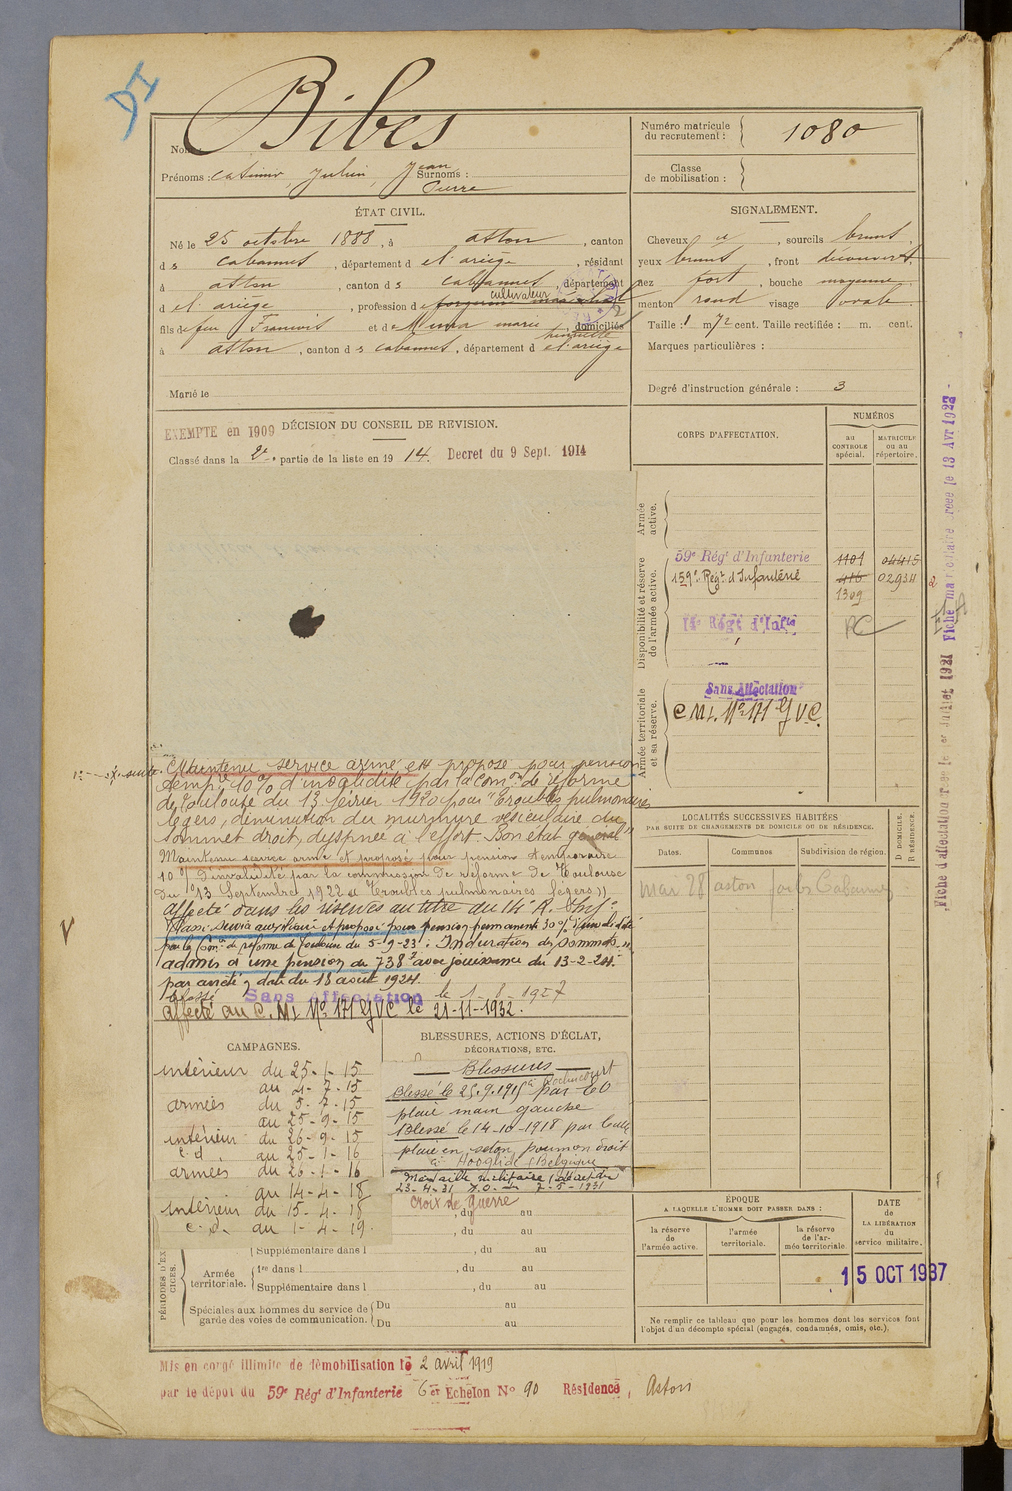 DI
Nom Bibes
Prénoms : Casimir, Julien, Jean Surnoms :
Pierre
Numéro matricule
du recrutement : 1080
Classe
de mobilisation :
ÉTAT CIVIL.
Né le 25 octobre 1888, à Aston, canton
de Cabannes, département de l'ariège, résidant
à Aston, canton de Cabannes, département
de l'ariège, profession de forgeron maréchal cultivateur
fils de feu François et de marie, domiciliés
à Aston, canton de Cabannes, département de l'ariège
Marié le
SIGNALEMENT.
Cheveux et, sourcils bruns,
yeux bruns, front découvert,
nez fort, bouche moyenne,
menton rond visage ovale.
Taille : 1 m 72 cent. Taille rectifiée : m. cent.
Marques particulières :
Degré d'instruction générale : 3
EXEMPTE en 1909 DÉCISION DU CONSEIL DE REVISION.
Classé dans la 2e partie de la liste en 1914. Decret du 9 Sept. 1914
CORPS D'AFFECTATION.
NUMÉROS
au
CONTROLE
spécial.
MATRICULE
ou au
répertoire.
Armée
active.
Disponibilité et réserve
de l'armée active.
59e Régt d'Infanterie 1101 04415
159e Régt d'Infanterie 416 02934
1309
14e Régt d'Infie PC
Armée territoriale
et sa réserve.
Sans Affectation
C Mt. No 171 GVC.
Maintenu service armé et proposé pour pension
temp. 10% d'invalidité par la Comon de réforme
de Toulouse du 13 février 1920 pour "Troubles pulmonaires
légers, diminution du murmure vésiculaire du
sommet droit, dyspnée à l'effort. Bon état général"
Maintenu service armé et proposé pour pension temporaire
10% d'invalidité par la commission de réforme de Toulouse
du 13 Septembre 1922 "Troubles pulmonaires légers"
Affecté dans les réserves au titre du 14e R. d'Infie
Classé service auxiliaire et proposé pour pension permanente 30% d'invalidité
par la Comon de réforme de Toulouse du 5-9-23 : Induration des sommets"
admis à une pension de 738f avec jouissance du 13-2-24
par arrêté en date du 18 août 1924.
Classé Sans affectation le 1-8-1927
affecté au C. Mt No 171 GVC le 21-11-1932.
LOCALITÉS SUCCESSIVES HABITÉES
PAR SUITE DE CHANGEMENTS DE DOMICILE OU DE RÉSIDENCE.
Dates. Communes Subdivision de région.
D DOMICILE.
R RÉSIDENCE.
Mai 28 aston les Cabannes
CAMPAGNES.
intérieur du 25-1-15
au 4-7-15
armées du 5-7-15
au 25-9-15
intérieur du 26-9-15
c.d. au 25-1-16
armées du 26-1-16
au 14-4-18
intérieur du 15-4-18
c.d. au 1-4-19.
BLESSURES, ACTIONS D'ÉCLAT,
DÉCORATIONS, ETC.
Blessures
Blessé le 25.9.1915 à Rochincourt par éc
plaie main gauche
Blessé le 14-10-1918 par balle
plaie en séton poumon droit
à Hooglide (Belgique)
Médaille militaire (décret du
23-4-31 J.O. 7-5-1931
croix de guerre
, du au
, du au
PÉRIODES D'EXERCICES.
Supplémentaire dans l , du au
Armée
territoriale.
1re dans l , du au
Supplémentaire dans l , du au
Spéciales aux hommes du service de
garde des voies de communication.
Du au
Du au
ÉPOQUE
A LAQUELLE L'HOMME DOIT PASSER DANS :
la réserve
de
l'armée active.
l'armée
territoriale.
la réserve
de l'ar-
mée territoriale
DATE
de
LA LIBÉRATION
du
service militaire.
15 OCT 1937
Ne remplir ce tableau que pour les hommes dont les services font
l'objet d'un décompte spécial (engagés, condamnés, omis, etc.).
Mis en congé illimité de démobilisation le 2 avril 1919
par le dépôt du 59e Régt d'Infanterie 6er Echelon No 90 Résidence, Aston
Fiche d'affectation créée le 1er Juillet 1921